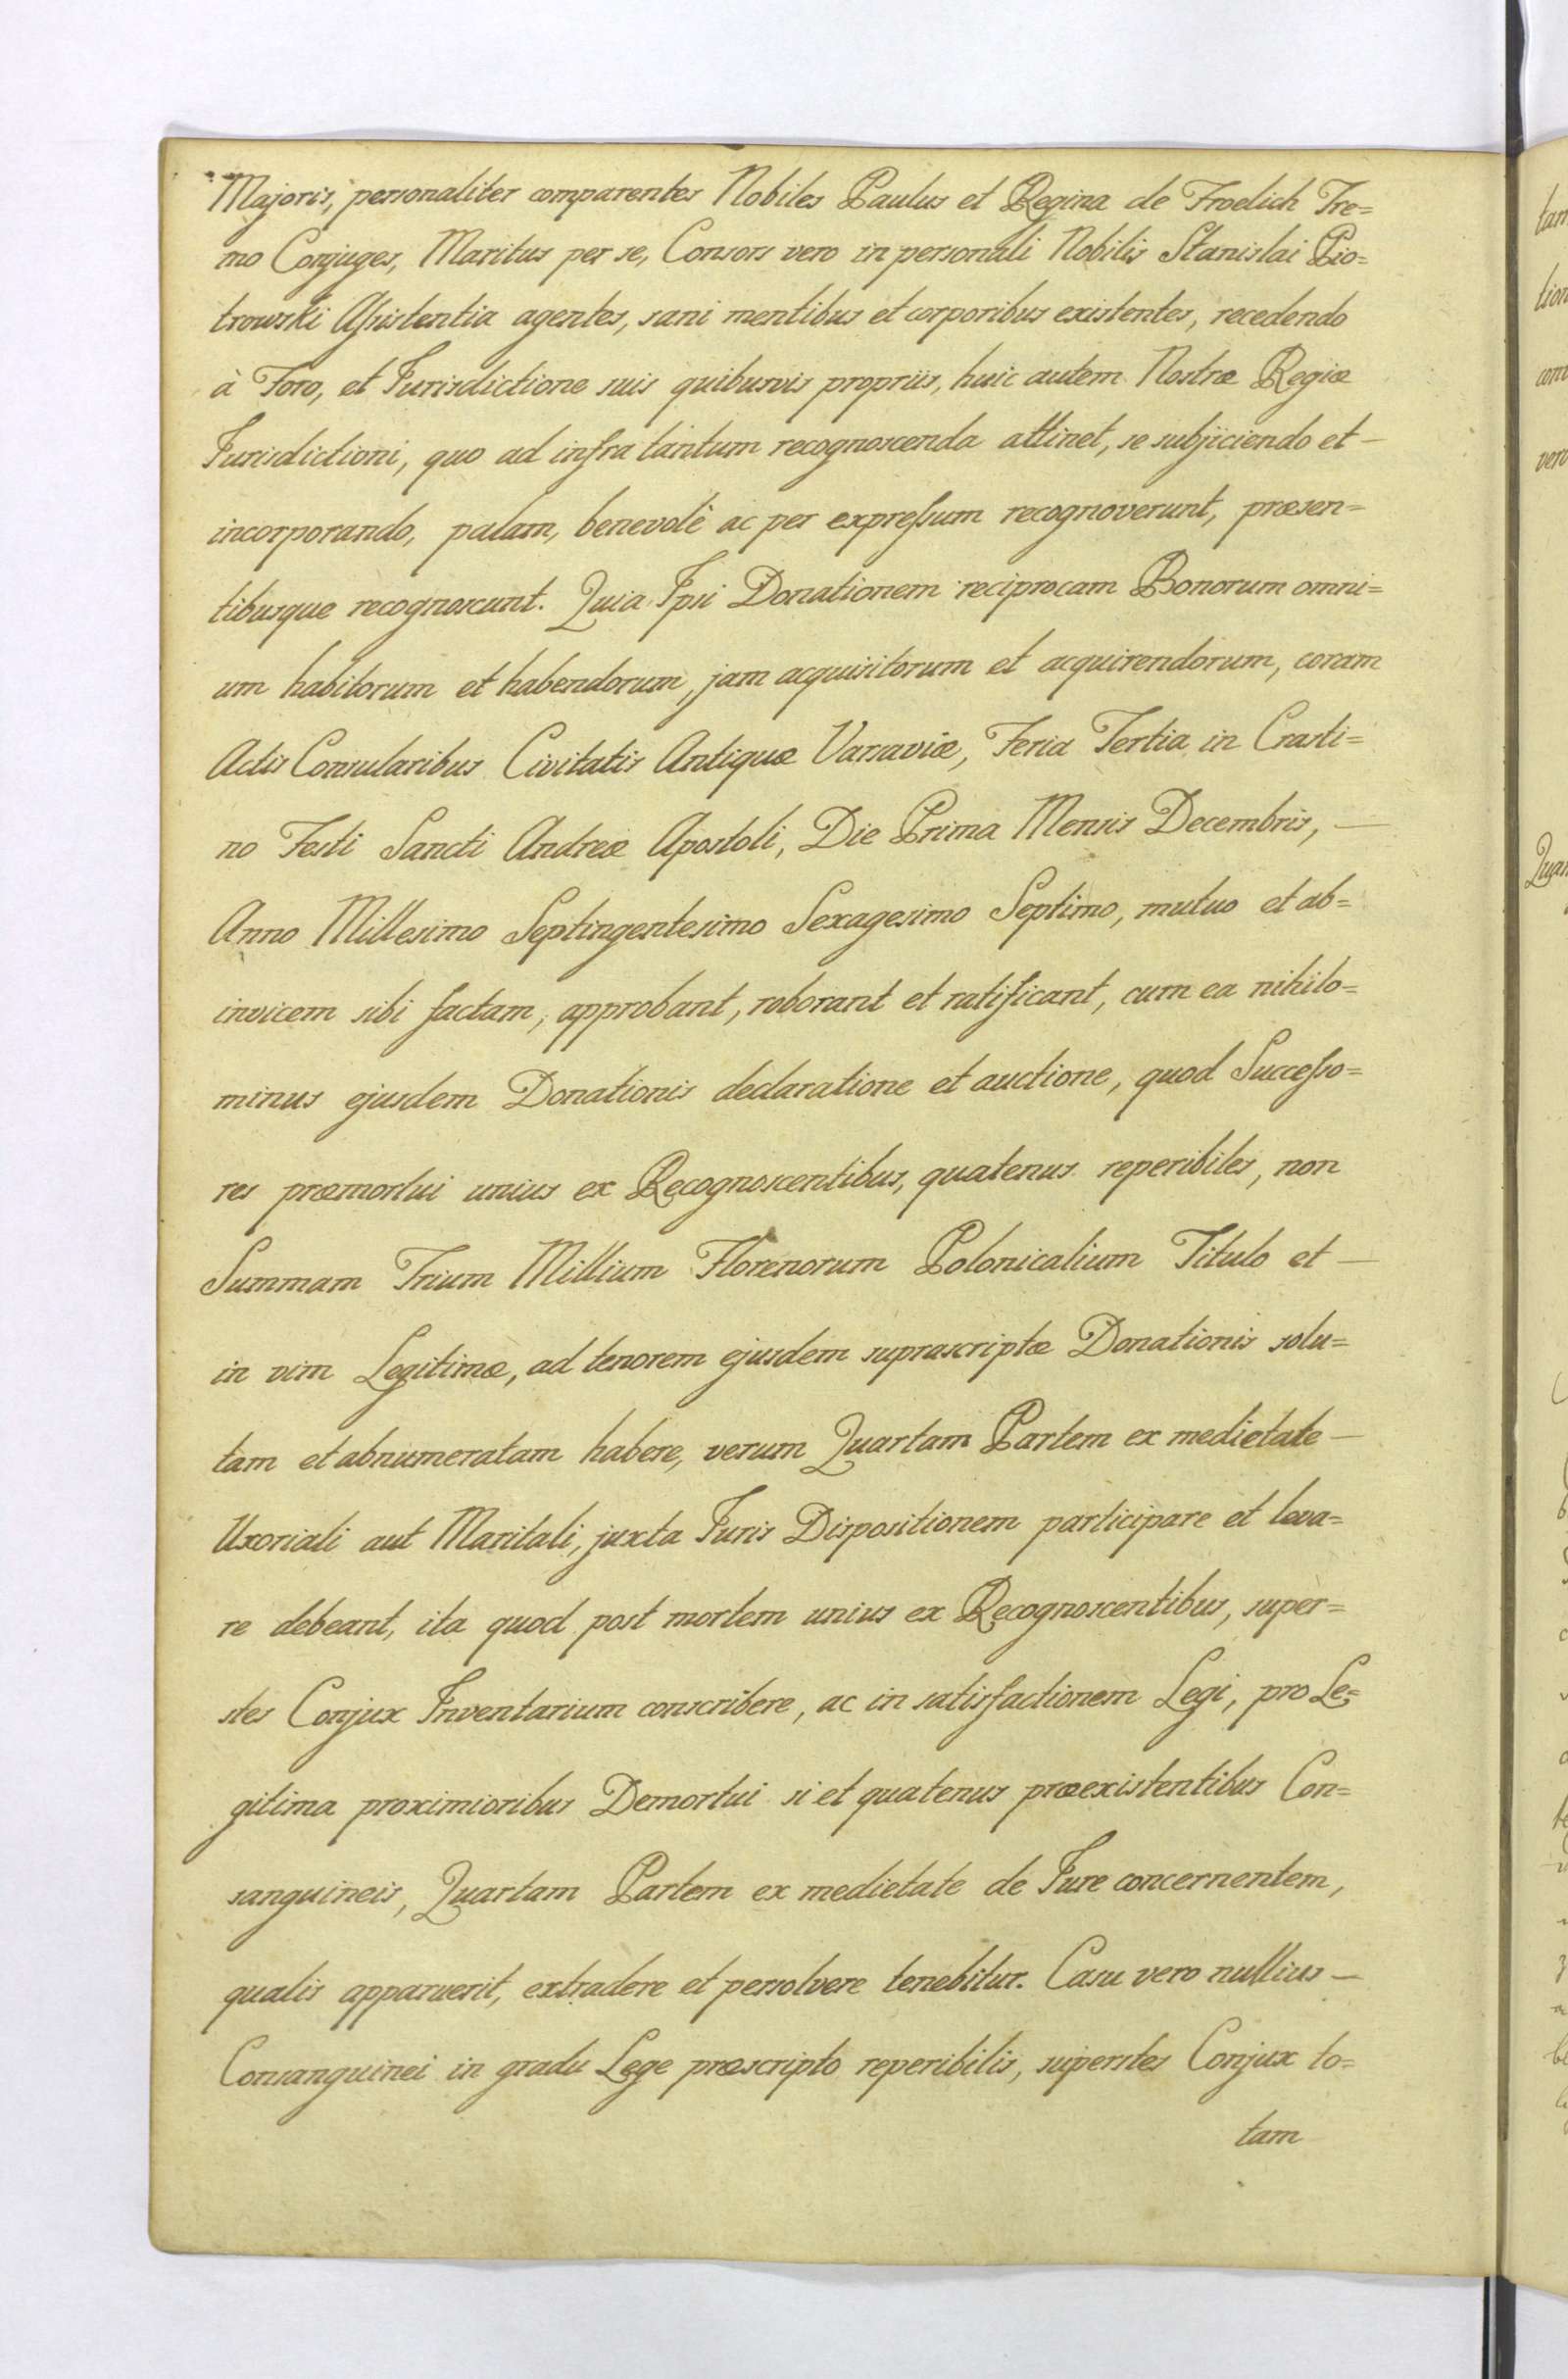 Majoris, personaliter comparentes Nobiles Paulus et Regina de Froelich Fre=
mo Conjuges, Maritus per se, Consors vero in personali Nobilis Stanislai Pio=
trowski Aſsistentia agentes, sani mentibus et corporibus existentes, recedendo
à Foro, et Jurisdictione suis quibusvis propriis, huic autem Nostræ Regiæ
Jurisdictioni, quo ad infra tantum recognoscenda attinet, se subjiciendo et —
incorporando, palam, benevolè ac per expreſsum recognoverunt, præsen=
tibusque recognoscunt. Quia Ipsi Donationem reciprocam Bonorum omni=
um habitorum et habendorum, jam acquisitorum et acquirendorum, coram
Actis Consularibus Civitatis Antiquæ Varsaviæ, Feria Tertia in Crasti=
no Festi Sancti Andreæ Apostoli, Die Prima Mensis Decembris, —
Anno Millesimo Septingentesimo Sexagesimo Septimo, mutuo et ab=
invicem sibi factam, approbant, roborant et ratificant, cum ea nihilo=
minus ejusdem Donationis declaratione et auctione, quod Succeſso=
res præmortui unius ex Recognoscentibus, quatenus reperibiles, non
Summam Trium Millium Florenorum Polonicalium Titulo et —
in vim Legitimæ, ad tenorem ejusdem suprascriptæ Donationis solu=
tam et abnumeratam habere, verum Quartam Partem ex medietate —
Uxoriali aut Maritali, juxta Juris Dispositionem participare et leva=
re debeant, ita quod post mortem unius ex Recognoscentibus, super=
stes Conjux Inventarium conscribere, ac in satisfactionem Legi, pro Le=
gitima proximioribus Demortui si et quatenus præexistentibus Con=
sanguineis, Quartam Partem ex medietate de Jure concernentem,
qualis apparuerit, extradere et persolvere tenebitur. Casu vero nullius —
Consanguinei in gradu Lege præscripto reperibilis, superstes Conjux to=
tam